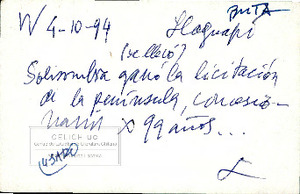 V 4-10-94 Ilaguapi
(se lleió)
Solisomba ganó la licitación
de la península, concesio-
nario x 99 años...
CELICH UC
(USADO)
L